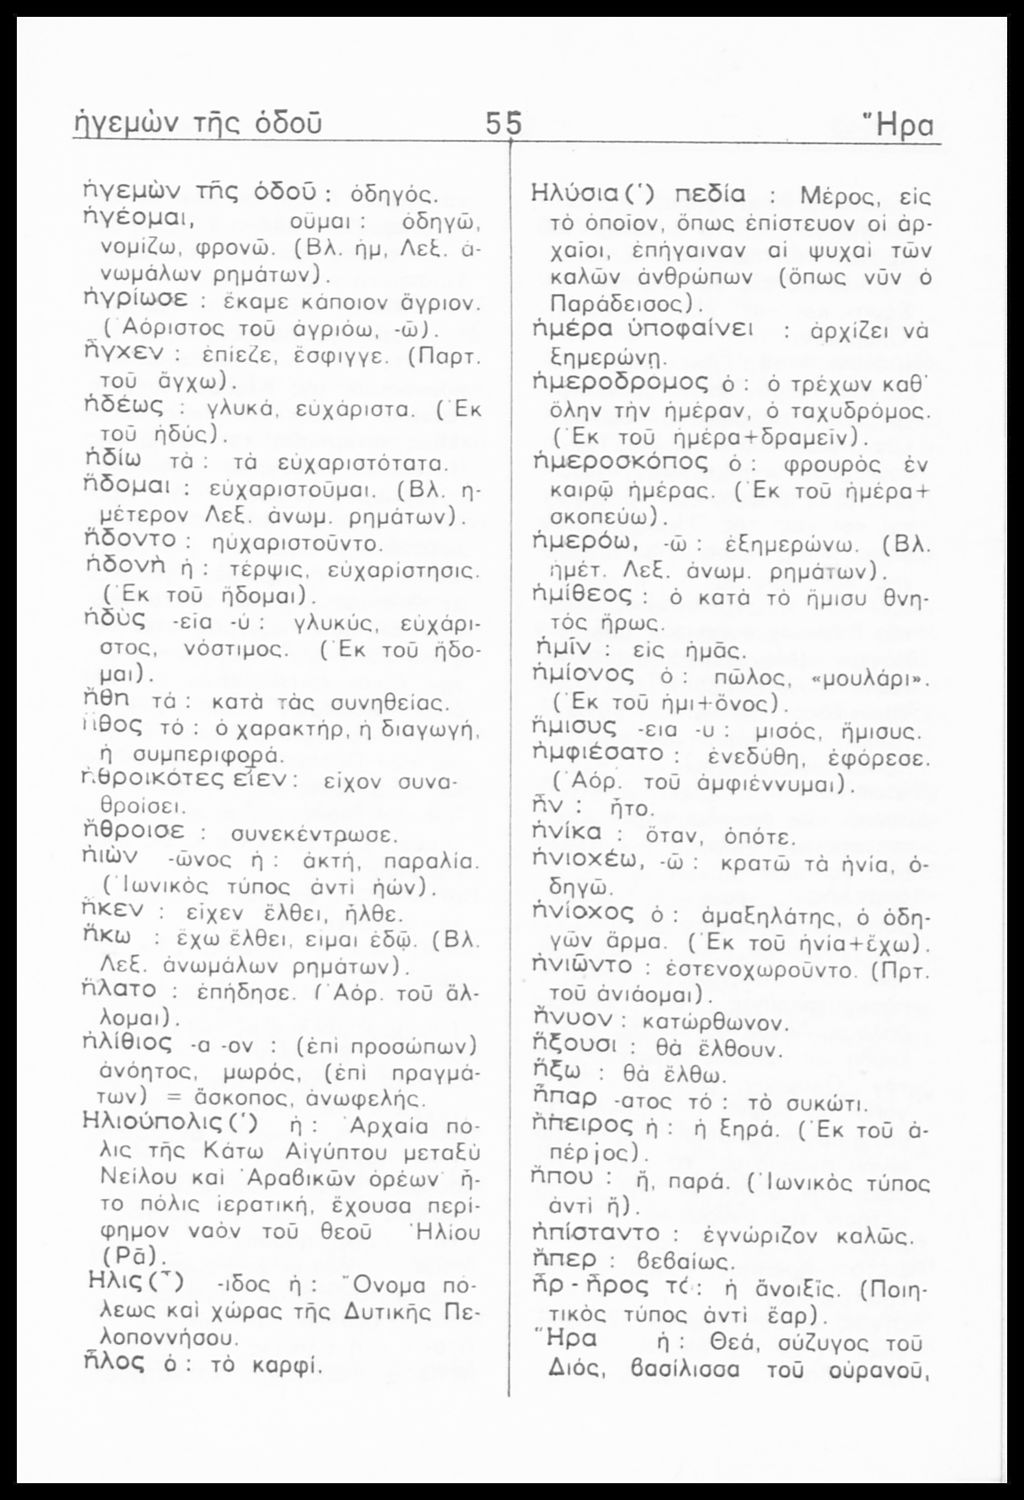 ἡγεμὼν τῆς ὁδοῦ 55 Ἥρα
ἡγεμὼν τῆς ὁδοῦ : ὁδηγός.
ἡγέομαι, οῦμαι : ὁδηγῶ,
νομίζω, φρονῶ. (Βλ. ἡμ, Λεξ. ἀ-
νωμάλων ρημάτων).
ἠγρίωσε : ἔκαμε κάποιον ἄγριον.
(Ἀόριστος τοῦ ἀγριόω, -ῶ).
ἦγχεν : ἐπίεζε, ἔσφιγγε. (Παρτ.
τοῦ ἄγχω).
ἡδέως : γλυκά, εὐχάριστα. (Ἐκ
τοῦ ἡδύς).
ἡδίω τὰ : τὰ εὐχαριστότατα.
ἥδομαι : εὐχαριστοῦμαι. (Βλ. η-
μέτερον Λεξ. ἀνωμ. ρημάτων).
ἥδοντο : ηὐχαριστοῦντο.
ἡδονὴ ἡ : τέρψις, εὐχαρίστησις.
(Ἐκ τοῦ ἥδομαι).
ἡδὺς -εῖα -ύ : γλυκύς, εὐχάρι-
στος, νόστιμος. (Ἐκ τοῦ ἥδο-
μαι).
ἤθη τά : κατὰ τὰς συνηθείας.
ἦθος τό : ὁ χαρακτήρ, ἡ διαγωγή,
ἡ συμπεριφορά.
ἠθροικότες εἶεν : εἶχον συνα-
θροίσει.
ἤθροισε : συνεκέντρωσε.
ἠιὼν -ῶνος ἡ : ἀκτή, παραλία.
(Ἰωνικὸς τύπος ἀντὶ ἠών).
ἧκεν : εἶχεν ἔλθει, ἦλθε.
ἥκω : ἔχω ἔλθει, εἶμαι ἐδῶ. (Βλ.
Λεξ. ἀνωμάλων ρημάτων).
ἥλατο : ἐπήδησε. (Ἀόρ. τοῦ ἅλ-
λομαι).
ἠλίθιος -α -ον : (ἐπὶ προσώπων)
ἀνόητος, μωρός, (ἐπὶ πραγμά-
των) = ἄσκοπος, ἀνωφελής.
Ηλιούπολις (Ἡ) ἡ : Ἀρχαία πό-
λις τῆς Κάτω Αἰγύπτου μεταξὺ
Νείλου καὶ Ἀραβικῶν ὀρέων ἦ-
το πόλις ἱερατική, ἔχουσα περί-
φημον ναὸν τοῦ θεοῦ Ἡλίου
(Ρᾶ).
Ηλις (Ἦ) -ιδος ἡ : Ὄνομα πό-
λεως καὶ χώρας τῆς Δυτικῆς Πε-
λοποννήσου.
ἧλος ὁ : τὸ καρφί.
Ηλύσια (Ἠ) πεδία : Μέρος, εἰς
τὸ ὁποῖον, ὅπως ἐπίστευον οἱ ἀρ-
χαῖοι, ἐπήγαιναν αἱ ψυχαὶ τῶν
καλῶν ἀνθρώπων (ὅπως νῦν ὁ
Παράδεισος).
ἡμέρα ὑποφαίνει : ἀρχίζει νὰ
ξημερώνῃ.
ἡμεροδρομος ὁ : ὁ τρέχων καθ'
ὅλην τὴν ἡμέραν, ὁ ταχυδρόμος.
(Ἐκ τοῦ ἡμέρα+δραμεῖν).
ἡμεροσκόπος ὁ : φρουρὸς ἐν
καιρῷ ἡμέρας. (Ἐκ τοῦ ἡμέρα+
σκοπεύω).
ἡμερόω, -ῶ : ἐξημερώνω. (Βλ.
ἡμέτ. Λεξ. ἀνωμ. ρημάτων).
ἡμίθεος : ὁ κατὰ τὸ ἥμισυ θνη-
τὸς ἥρως.
ἡμῖν : εἰς ἡμᾶς.
ἡμίονος ὁ : πῶλος, «μουλάρι».
(Ἐκ τοῦ ἡμι+ὄνος).
ἥμισυς -εια -υ : μισός, ἥμισυς.
ἠμφιέσατο : ἐνεδύθη, ἐφόρεσε.
(Ἀόρ. τοῦ ἀμφιέννυμαι).
ἦν : ἦτο.
ἡνίκα : ὅταν, ὁπότε.
ἡνιοχέω, -ῶ : κρατῶ τὰ ἡνία, ὁ-
δηγῶ.
ἡνίοχος ὁ : ἁμαξηλάτης, ὁ ὁδη-
γῶν ἅρμα. (Ἐκ τοῦ ἡνία+ἔχω).
ἠνιῶντο : ἐστενοχωροῦντο. (Πρτ.
τοῦ ἀνιάομαι).
ἤνυον : κατώρθωνον.
ἥξουσι : θὰ ἔλθουν.
ἥξω : θὰ ἔλθω.
ἧπαρ -ατος τό : τὸ συκώτι.
ἤπειρος ἡ : ἡ ξηρά. (Ἐκ τοῦ ἀ-
πέρjος).
ἤπου : ἤ, παρά. (Ἰωνικὸς τύπος
ἀντὶ ἤ).
ἠπίσταντο : ἐγνώριζον καλῶς.
ἤπερ : βεβαίως.
ἦρ - ἦρος τό : ἡ ἄνοιξις. (Ποιη-
τικὸς τύπος ἀντὶ ἔαρ).
Ἥρα ἡ : Θεά, σύζυγος τοῦ
Διός, βασίλισσα τοῦ οὐρανοῦ,